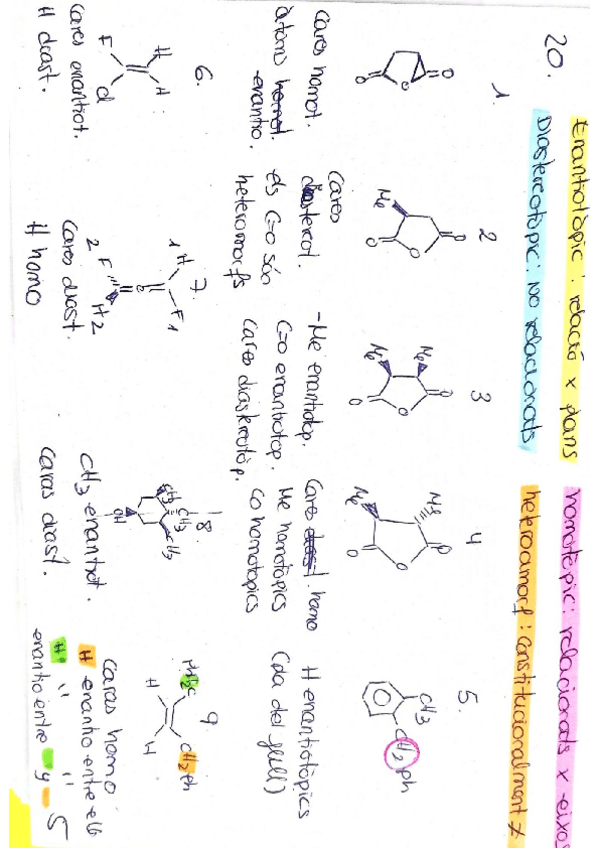 Enantiotòpic: relació x plans homotòpic: relacionats x eixos
20. Diastereotòpic: no relacionats heteroamorf: constitucionalment ≠
1 2 3 4 5.
O O O
Me O O O
Me Me O O O
Me Me O O O
CH3
CH2 ph
Cares homot.
àtoms homot.
-enantio.
Cares
diastereot.
els C=O són
heteromorfs
-Me enantiotop.
C=O enantiotop.
Cares diastereotòp.
Cares diast. homo
Me homotòpics
CO homotòpics
H enantiotòpics
(pla del full)
6. 7. 8. 9
H H
F Cl
1 H F 1
2 F H 2
CH3 CH3 CH3
OH
PhH2C CH2ph
H H
Cares enantiot.
H diast.
Cares diast.
H homo
CH3 enantiot.
Caras diast.
Caras homo
H enantio entre ells
H " "
enantio entre y
5